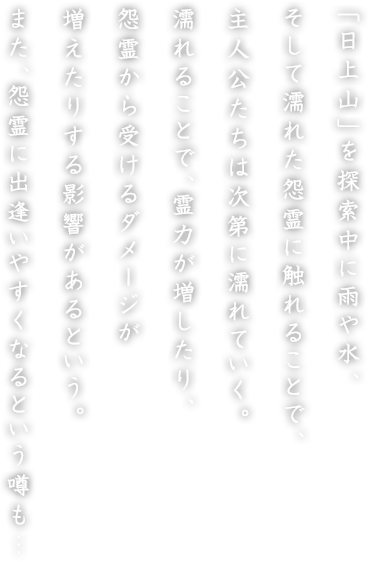 「日上山」を探索中に雨や水、
そして濡れた怨霊に触れることで、
主人公たちは次第に濡れていく。
濡れることで、霊力が増したり、
怨霊から受けるダメージが
増えたりする影響があるという。
また、怨霊に出逢いやすくなるという噂も…